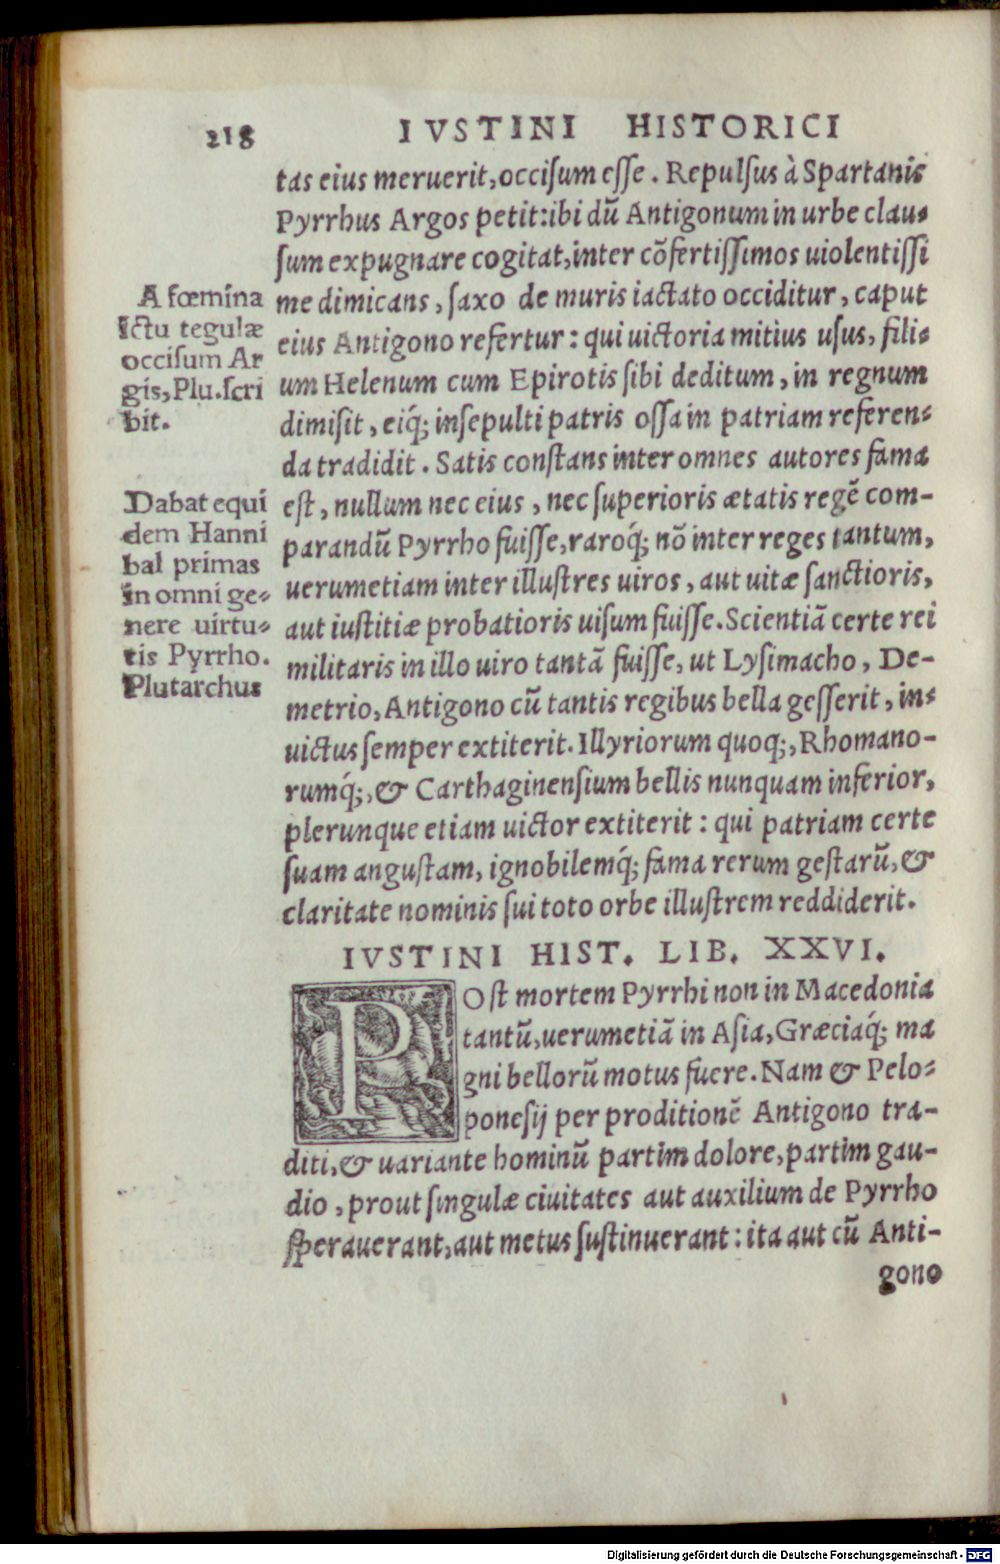 218 IVSTINI HISTORICI
tas eius meruerit, occisum esse. Repulsus à Spartanis
Pyrrhus Argos petit: ibi dũ Antigonum in urbe clau-
sum expugnare cogitat, inter cõfertissimos uiolentissi
me dimicans, saxo de muris iactato occiditur, caput
eius Antigono refertur: qui uictoria mitius usus, fili-
um Helenum cum Epirotis sibi deditum, in regnum
dimisit, eiq́; insepulti patris ossa in patriam referen-
da tradidit. Satis constans inter omnes autores fama
est, nullum nec eius, nec superioris ætatis regẽ com-
parandũ Pyrrho fuisse, raroq́; nõ inter reges tantum,
uerumetiam inter illustres uiros, aut uitæ sanctioris,
aut iustitiæ probatioris uisum fuisse. Scientiã certe rei
militaris in illo uiro tantã fuisse, ut Lysimacho, De-
metrio, Antigono cũ tantis regibus bella gesserit, in-
uictus semper extiterit. Illyriorum quoq;, Rhomano-
rumq́;, & Carthaginensium bellis nunquam inferior,
plerunque etiam uictor extiterit: qui patriam certe
suam angustam, ignobilemq́; fama rerum gestarũ, &
claritate nominis sui toto orbe illustrem reddiderit.
A fœmina
ictu tegulæ
occisum Ar
gis, Plu. scri
bit.
Dabat equi
dem Hanni
bal primas
in omni ge-
nere uirtu-
tis Pyrrho.
Plutarchus
IVSTINI HIST. LIB. XXVI.
POst mortem Pyrrhi non in Macedonia
tantũ, uerumetiã in Asia, Græciaq́; ma
gni bellorũ motus fuere. Nam & Pelo-
ponesij per proditionẽ Antigono tra-
diti, & uariante hominũ partim dolore, partim gau-
dio, prout singulæ ciuitates aut auxilium de Pyrrho
sperauerant, aut metus sustinuerant: ita aut cũ Anti-
gono
Digitalisierung gefördert durch die Deutsche Forschungsgemeinschaft - DFG